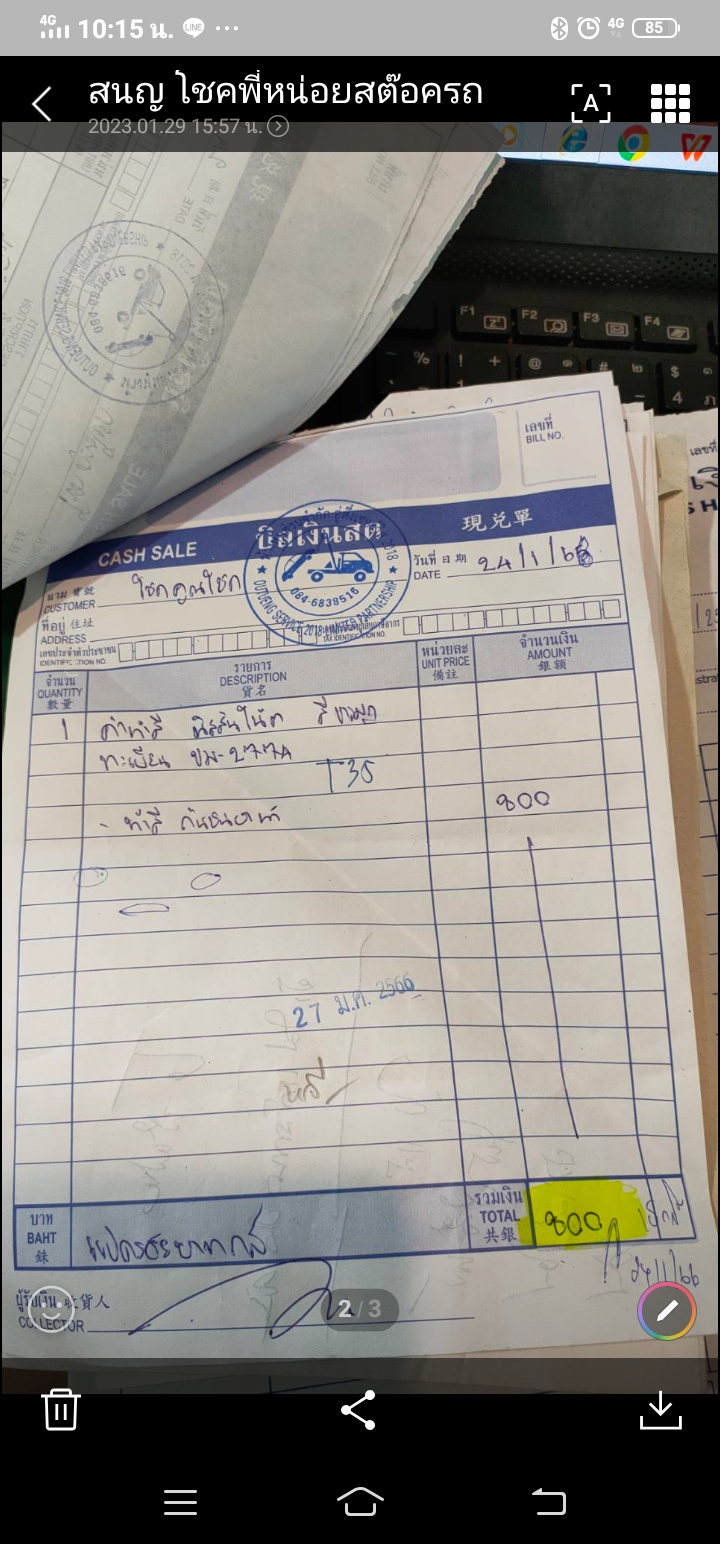 4G 10:15 น. LINE ... 4G 85
สนญ โชคพี่หน่อยสต๊อครถ
2023.01.29 15:57 น.
A
F1 F2 F3 F4
% ! + @ ๑ # ๒ $ ๓
4 ภ
เลขที่
BILL NO.
CASH SALE บิลเงินสด 現兑單
084-6838516
OUTUENG SERVICE 2018 LIMITED PARTNERSHIP
นาม 寶號
CUSTOMER โชคคูณโชค
วันที่ 日期
DATE 24/1/66
ที่อยู่ 住址
ADDRESS
เลขประจำตัวประชาชน
IDENTIFICATION NO.
TAX IDENTIFICATION NO.
จำนวน รายการ หน่วยละ จำนวนเงิน
QUANTITY DESCRIPTION UNIT PRICE AMOUNT
數量 貨名 備註 銀額
1 ค่าทำสี นิสสันโน๊ต สีชมพู
ทะเบียน ขม-2774
T35
- ทำสี กันชนหน้า 800
27 ม.ค. 2566
บาท
BAHT
銖
แปดร้อยบาทถ้วน
รวมเงิน
TOTAL
共銀
800
24/1/66
ผู้รับเงิน 收貨人
COLLECTOR
2 / 3